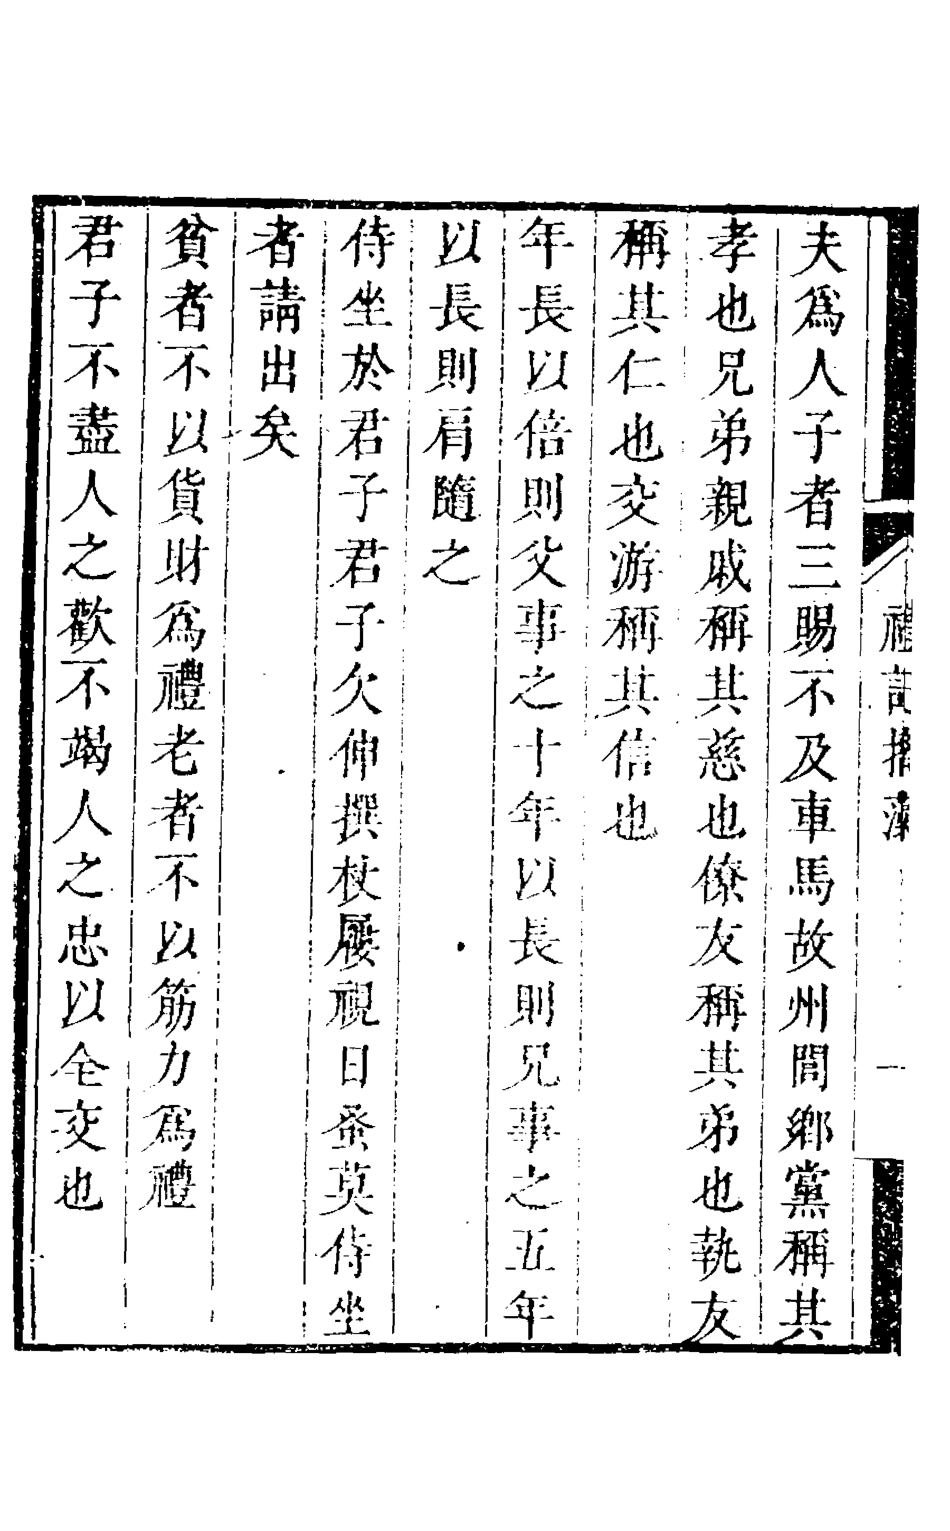 夫爲人子者三賜不及車馬故州閭鄉黨稱其
孝也兄弟親戚稱其慈也僚友稱其弟也執友
稱其仁也交游稱其信也
年長以倍則父事之十年以長則兄事之五年
以長則肩隨之
侍坐於君子君子欠伸撰杖屨視日蚤莫侍坐
者請出矣
貧者不以貨財爲禮老者不以筋力爲禮
君子不盡人之歡不竭人之忠以全交也
禮記
一